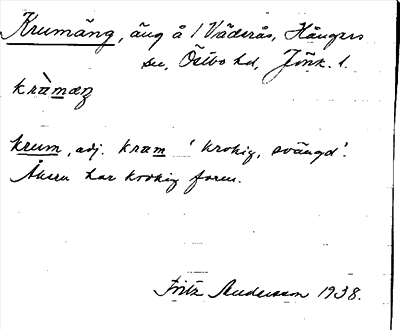 Krumäng, äng å 1/ Väderås, Hångers
sn, Östbo hd, Jönk. l.
krùmæŋ
krum, adj. krum 'krokig, svängd'.
Åkern har krokig form.
Fritz Andersson 1938.